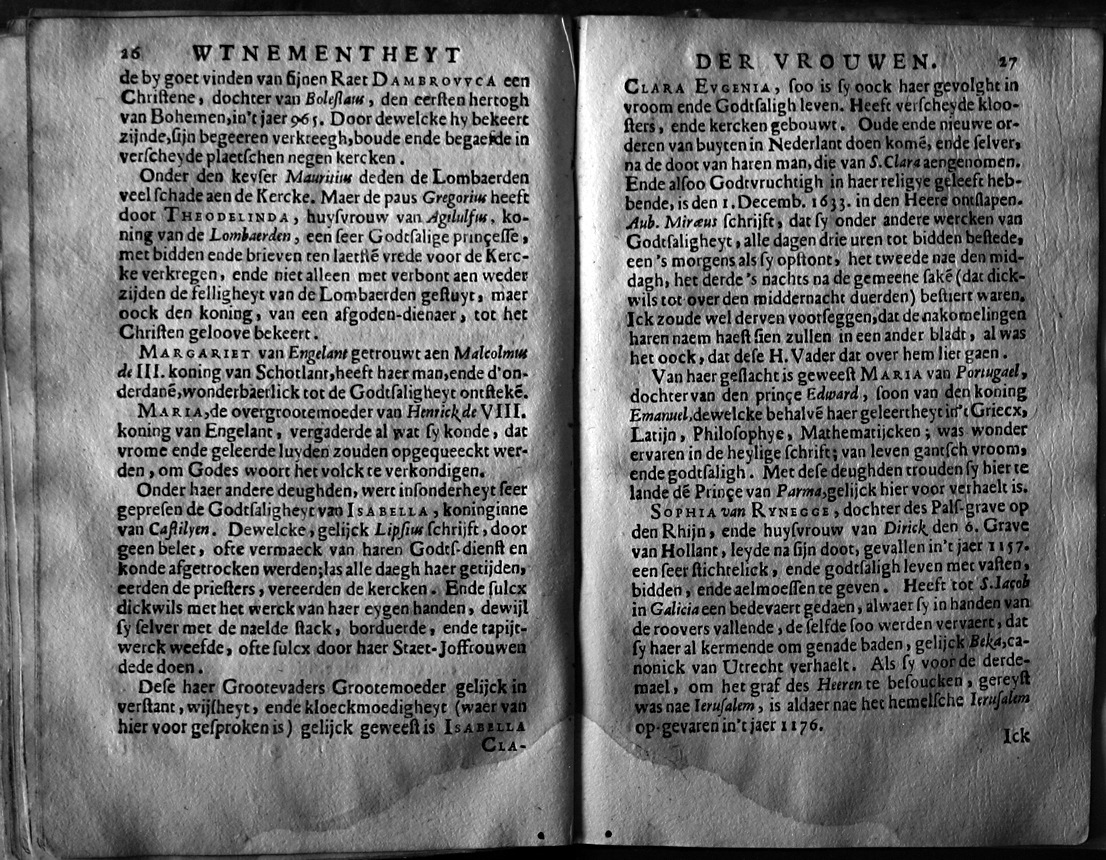 26 WTNEMENTHEYT
de by goet vinden van ſijnen Raet DAMBROVVCA een
Chriſtene, dochter van Boleſlaus, den eerſten hertogh
van Bohemen, in't jaer 965. Door dewelcke hy bekeert
zijnde, ſijn begeeren verkreegh, boude ende begaefde in
verſcheyde plaetſchen negen kercken.
Onder den keyſer Mauritius deden de Lombaerden
veel ſchade aen de Kercke. Maer de paus Gregorius heeft
door THEODELINDA, huyſvrouw van Agilulfus, ko-
ning van de Lombaerden, een ſeer Godtſalige prinçeſſe,
met bidden ende brieven ten laetſtē vrede voor de Kerc-
ke verkregen, ende niet alleen met verbont aen weder
zijden de felligheyt van de Lombaerden geſtuyt, maer
oock den koning, van een afgoden-dienaer, tot het
Chriſten geloove bekeert.
MARGARIET van Engelant getrouwt aen Malcolmus
de III. koning van Schotlant, heeft haer man, ende d'on-
derdanē, wonderbaerlick tot de Godtſaligheyt ontſtekē.
MARIA, de overgrootemoeder van Henrick de VIII.
koning van Engelant, vergaderde al wat ſy konde, dat
vrome ende geleerde luyden zouden opgequeeckt wer-
den, om Godes woort het volck te verkondigen.
Onder haer andere deughden, wert inſonderheyt ſeer
gepreſen de Godtſaligheyt van ISABELLA, koninginne
van Caſtilyen. Dewelcke, gelijck Lipſius ſchrijft, door
geen belet, ofte vermaeck van haren Godts-dienſt en
konde afgetrocken werden; las alle daegh haer getijden,
eerden de prieſters, vereerden de kercken. Ende ſulcx
dickwils met het werck van haer eygen handen, dewijl
ſy ſelver met de naelde ſtack, borduerde, ende tapijt-
werck weefde, ofte ſulcx door haer Staet-Joffrouwen
dede doen.
Deſe haer Grootevaders Grootemoeder gelijck in
verſtant, wijſheyt, ende kloeckmoedigheyt (waer van
hier voor geſproken is) gelijck geweeſt is ISABELLA
CLA-
DER VROUWEN. 27
CLARA EVGENIA, ſoo is ſy oock haer gevolght in
vroom ende Godtſaligh leven. Heeft verſcheyde kloo-
ſters, ende kercken gebouwt. Oude ende nieuwe or-
deren van buyten in Nederlant doen komē, ende ſelver,
na de doot van haren man, die van S. Clara aengenomen.
Ende alſoo Godtvruchtigh in haer religye geleeft heb-
bende, is den 1. Decemb. 1633. in den Heere ontſlapen.
Aub. Miræus ſchrijft, dat ſy onder andere wercken van
Godtſaligheyt, alle dagen drie uren tot bidden beſtede,
een 's morgens als ſy opſtont, het tweede nae den mid-
dagh, het derde 's nachts na de gemeene ſakē (dat dick-
wils tot over den middernacht duerden) beſtiert waren.
Ick zoude wel derven voorſeggen, dat de nakomelingen
haren naem haeſt ſien zullen in een ander bladt, al was
het oock, dat deſe H. Vader dat over hem liet gaen.
Van haer geſlacht is geweeſt MARIA van Portugael,
dochter van den prinçe Edward, ſoon van den koning
Emanuel, dewelcke behalvē haer geleertheyt in't Griecx,
Latijn, Philoſophye, Mathematijcken; was wonder
ervaren in de heylige ſchrift; van leven gantſch vroom,
ende godtſaligh. Met deſe deughden trouden ſy hier te
lande dē Prinçe van Parma, gelijck hier voor verhaelt is.
SOPHIA van RYNEGGE, dochter des Palſ-grave op
den Rhijn, ende huyſvrouw van Dirick den 6. Grave
van Hollant, leyde na ſijn doot, gevallen in't jaer 1157.
een ſeer ſtichtelick, ende godtſaligh leven met vaſten,
bidden, ende aelmoeſſen te geven. Heeft tot S. Iacob
in Galicia een bedevaert gedaen, alwaer ſy in handen van
de roovers vallende, de ſelfde ſoo werden vervaert, dat
ſy haer al kermende om genade baden, gelijck Beka, ca-
nonick van Utrecht verhaelt. Als ſy voor de derde-
mael, om het graf des Heeren te beſoucken, gereyſt
was nae Ieruſalem, is aldaer nae het hemelſche Ieruſalem
op-gevaren in't jaer 1176.
Ick